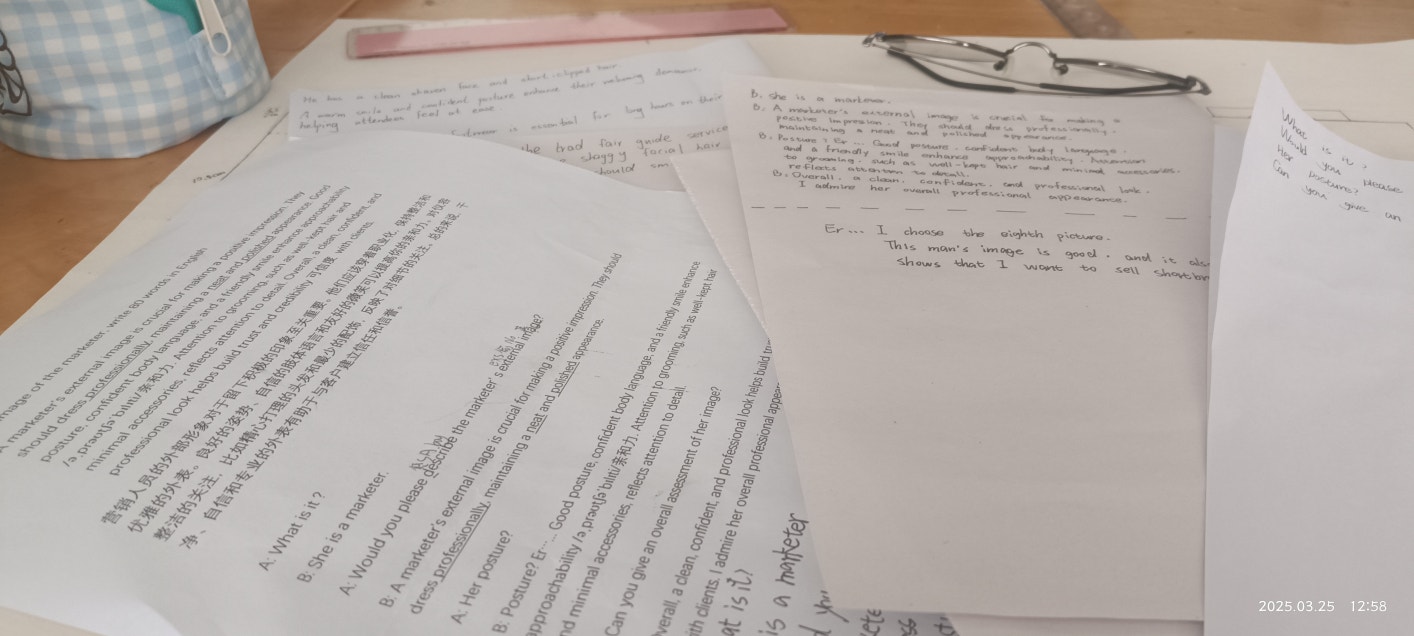 He has a clean shaven face and short-clipped hair.
A warm smile and confident posture enhance their
helping attendees feel at ease.
is essential for long hours on their
the trad fair guide service
shaggy facial hair
should
image of the marketer, write 80 words in English
A marketer's external image is crucial for making a positive impression. They
should dress professionally, maintaining a neat and polished appearance. Good
posture, confident body language, and a friendly smile enhance approachability
/ə,prəʊtʃə'bɪlɪti/亲和力. Attention to grooming, such as well-kept hair and
minimal accessories, reflects attention to detail. Overall, a clean, confident, and
professional look helps build trust and credibility 可信度 with clients.
营销人员的外部形象对于留下积极的印象至关重要。他们应该穿着职业化，保持整洁和
优雅的外表。良好的姿势、自信的肢体语言和友好的微笑可以提高你的亲和力。对仪容
整洁的关注，比如精心打理的头发和最少的配饰，反映了对细节的关注。总的来说，干
净、自信和专业的外表有助于与客户建立信任和信誉。
A: What is it ?
B: She is a marketer.
A: Would you please describe the marketer's external image?
B: A marketer's external image is crucial for making a positive impression. They should
dress professionally, maintaining a neat and polished appearance.
A: Her posture?
B: Posture? Er… Good posture, confident body language, and a friendly smile enhance
approachability /ə,prəʊtʃə'bɪlɪti/亲和力. Attention to grooming, such as well-kept hair
and minimal accessories, reflects attention to detail.
Can you give an overall assessment of her image?
Overall, a clean, confident, and professional look helps build
with clients. I admire her overall professional
at is it?
is a marketer
B. She is a marketer.
B. A marketer's external image is crucial for making a
positive impression. They should dress professionally.
maintaining a neat and polished appearance.
B. Posture? Er… Good posture. confident body language.
and a friendly smile enhance approachability. Attention
to grooming, such as well-kept hair and minimal accessories.
reflects attention to detail.
B. Overall, a clean, confident, and professional look.
I admire her overall professional appearance.
Er... I choose the eighth picture.
This man's image is good, and it also
shows that I want to sell
What is it?
Would you please
Her posture?
Can you give an
2025.03.25 12:58